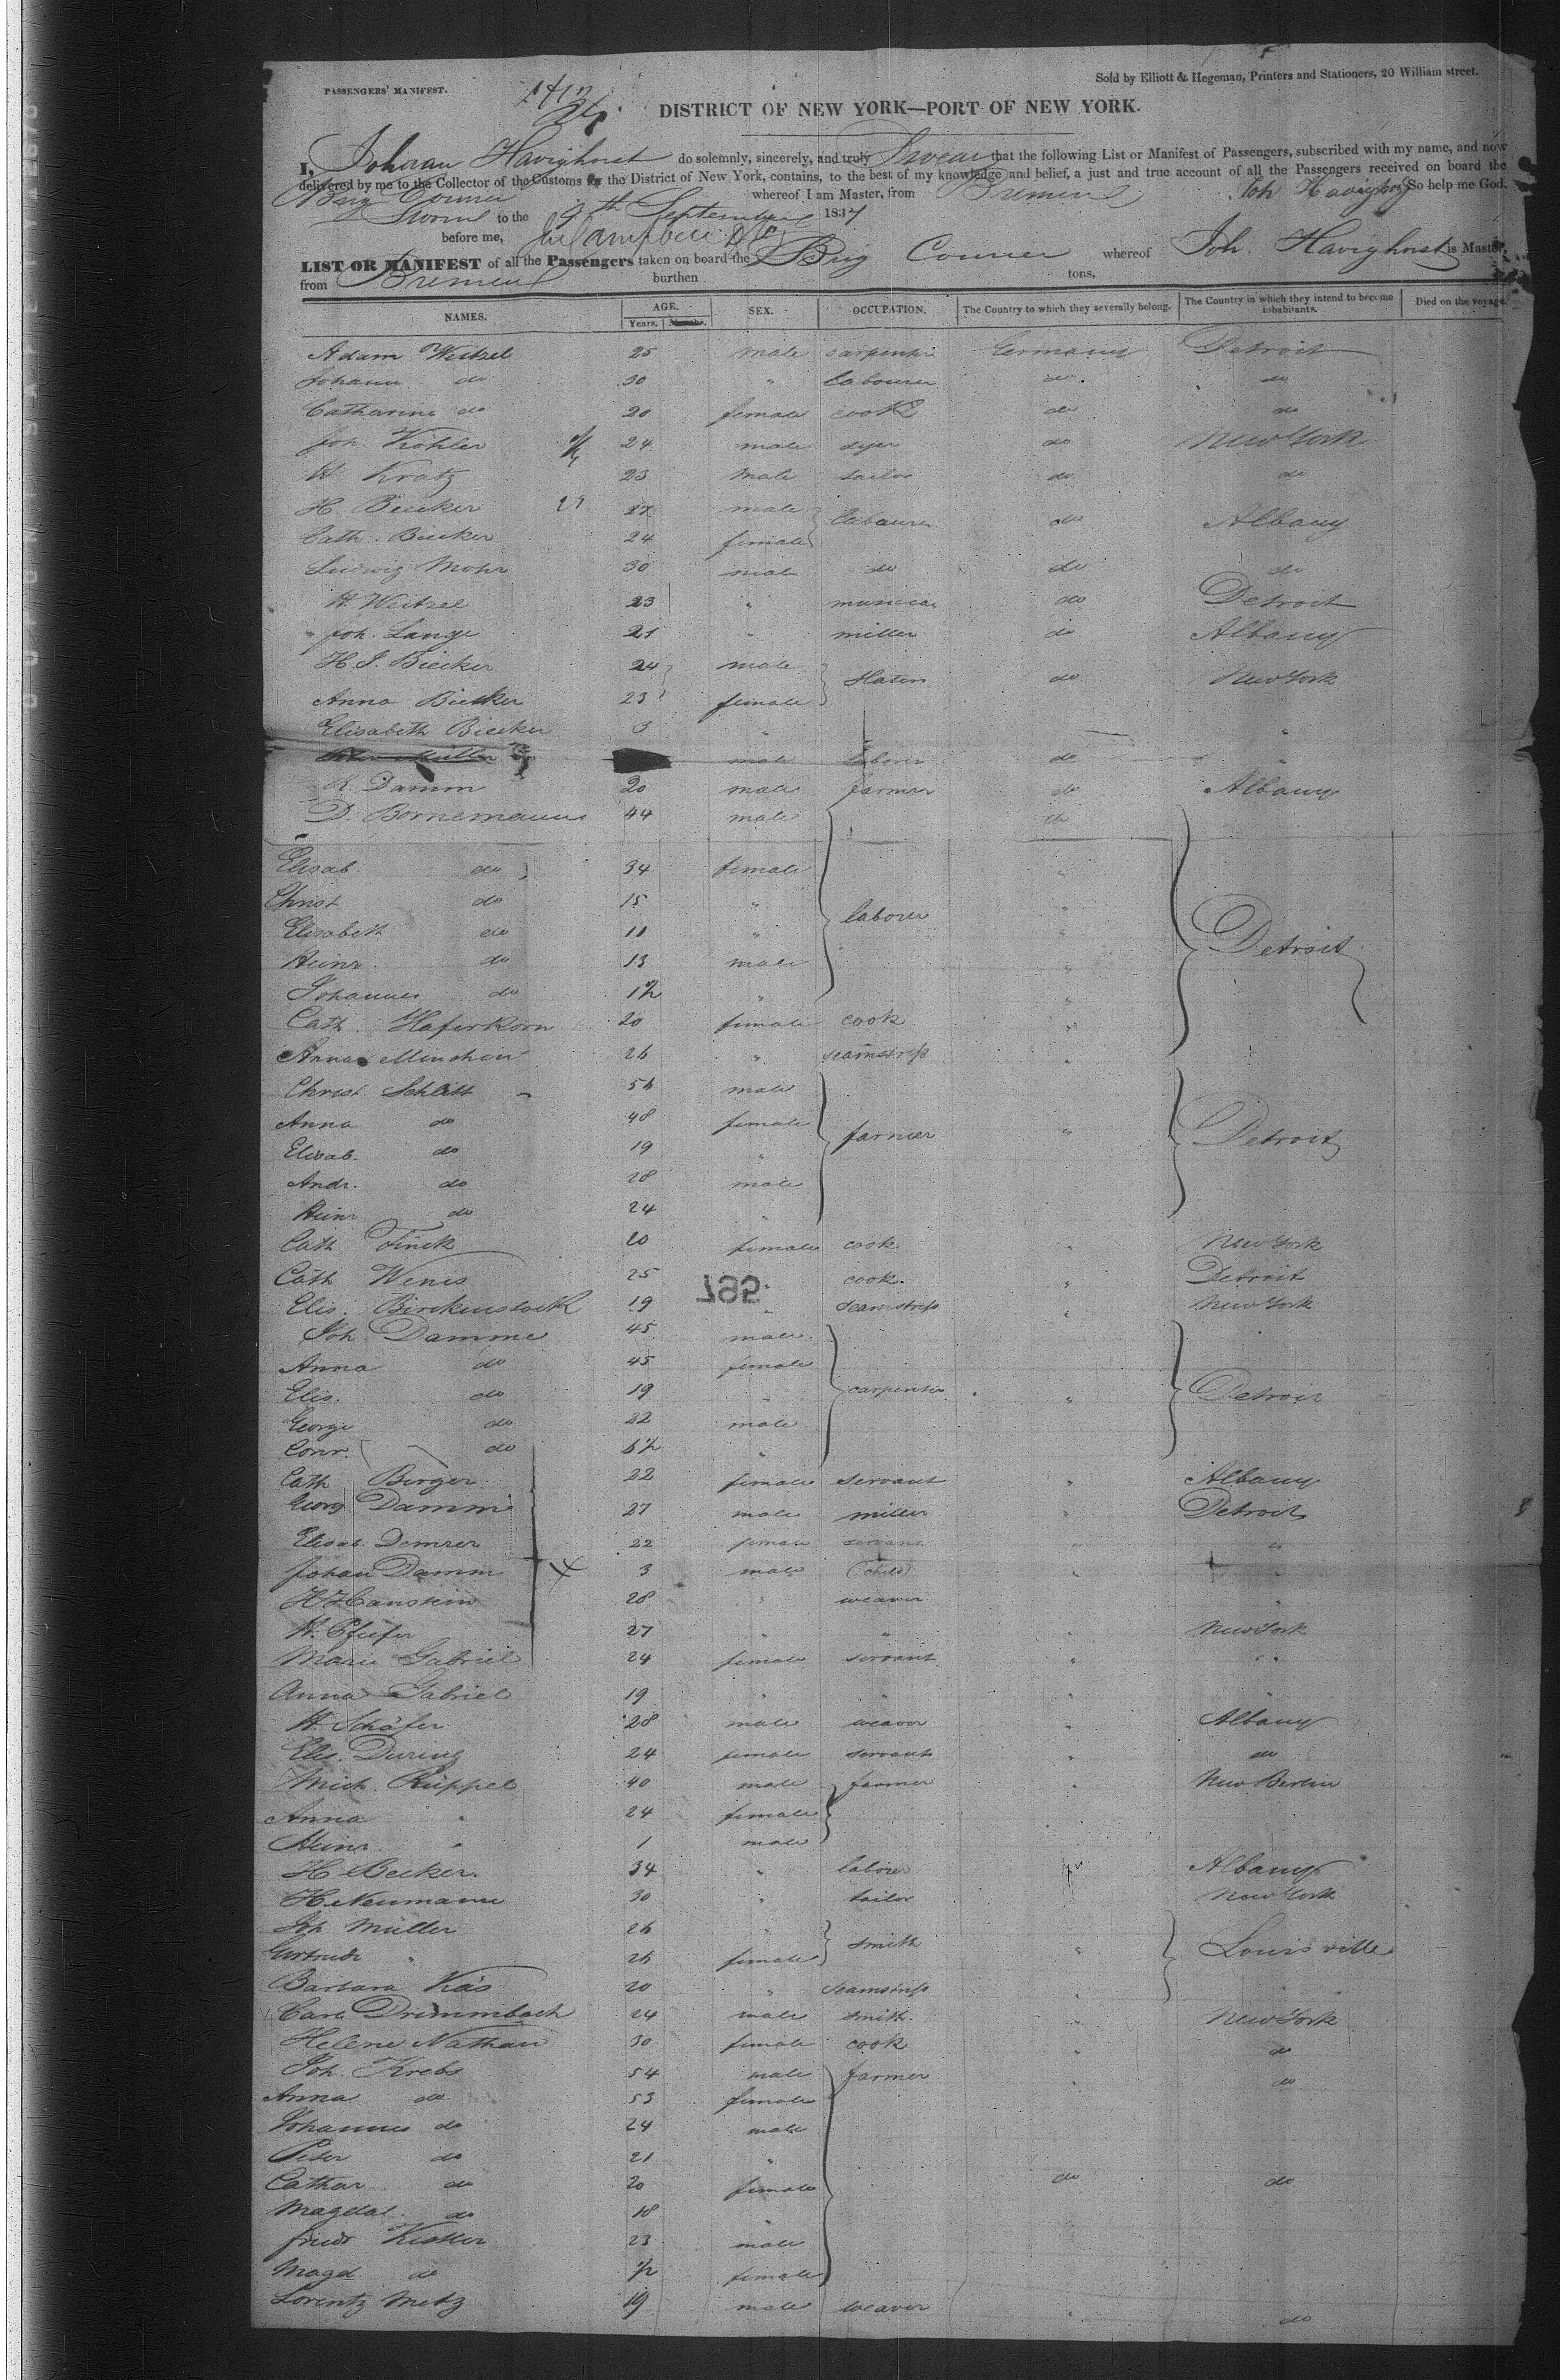 Sold by Elliott & Hegeman, Printers and Stationers, 20 William street.
PASSENGERS' MANIFEST.
DISTRICT OF NEW YORK—PORT OF NEW YORK.
I, Johann Havighorst do solemnly, sincerely, and truly Swear that the following List or Manifest of Passengers, subscribed with my name, and now
delivered by me to the Collector of the Customs for the District of New York, contains, to the best of my knowledge and belief, a just and true account of all the Passengers received on board the
Brig Courier whereof I am Master, from Bremen Joh Havighorst So help me God.
Sworn to the 9th September 1837
before me, Campbell
LIST OR MANIFEST of all the Passengers taken on board the Brig Courier whereof Joh. Havighorst is Master,
from Bremen burthen tons,
NAMES. AGE. Years. Months. SEX. OCCUPATION. The Country to which they severally belong. The Country in which they intend to become inhabitants. Died on the voyage.
Adam Weitzel 25 male carpenter Germany Detroit
Johann do 30 " labourer do do
Catharine do 20 female cook do do
Joh. Köhler 24 male dyer do New York
H Kratz 23 male tailor do do
H. Biecker 27 male labourer do Albany
Cath. Biecker 24 female
Ludwig Mohr 30 male do do do
H. Weitzel 23 " musician do Detroit
Joh. Lange 21 " miller do Albany
H. J. Biecker 24 male slater do New York
Anna Biecker 23 female
Elisabeth Biecker 3 " "
Müller male laborer do "
K. Damm 20 male farmer do Albany
D. Bornemann 44 male do
Elisab do 34 female "
Christ do 15 " laborer " Detroit
Elisabeth do 11 " "
Heinr. do 13 male "
Johannes do 1½ " "
Cath. Haferkorn 20 female cook "
Anna Minchin 26 " seamstress "
Christ. Schlitt 56 male
Anna do 48 female farmer " Detroit
Elisab. do 19 "
Andr. do 28 male
Heinr do 24 "
Cath Finck 20 female cook " New York
Cath Wenis 25 " cook. " Detroit
795
Elis. Birckenstock 19 " seamstress " New York
Joh. Damme 45 male
Anna do 45 female
Elis. do 19 " carpenter " Detroit
George do 22 male
Conr. do 6½ "
Cath Berger 22 female servant " Albany
Georg Damm 27 male miller " Detroit
Elisab. Demrer 22 female servant " "
Johan Damm 3 male (child) " "
H Hanstein 28 " weaver "
H. Pfeifer 27 " " " New York
Marie Gabriel 24 female servant " "
Anna Gabriel 19 " " " "
H. Schäfer 28 male weaver " Albany
Elis. During 24 female servant " do
Mich. Rüppel 40 male farmer " New Berlin
Anna " 24 female
Heinr. " 1 male
H Becker. 34 " laborer Albany
H. Neumann 30 " tailor New York
Joh Müller 26 " smith " Louisville
Gertrude " 26 female
Barbara Käs 20 " seamstress " "
Carl Drimmbach 24 male smith. " New York
Helene Nathan 30 female cook " do
Joh. Krebs 54 male farmer " do
Anna do 53 female
Johannes do 24 male
Peter do 21 "
Cathar. do 20 female do do
Magdal. do 18 "
Friedr Kistler 23 male
Magd. do ½ female
Lorentz Metz 19 male weaver " do